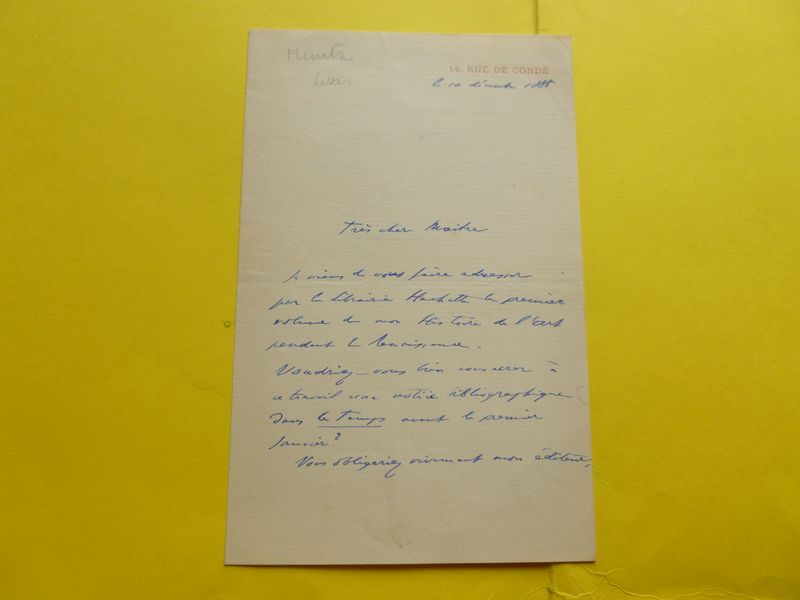 14. RUE DE CONDÉ
le 10 décembre 1888
Très cher Maître
Je viens de vous faire adresser
par la Librairie Hachette le premier
volume de mon Histoire de l'art
pendant la Renaissance.
Voudriez-vous bien consacrer à
ce travail une notice bibliographique
dans le Temps avant le premier
Janvier?
Vous obligeriez vivement mon éditeur,